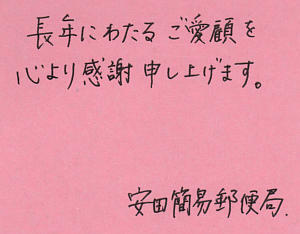 長年にわたるご愛顧を
心より感謝申し上げます。
安田簡易郵便局.